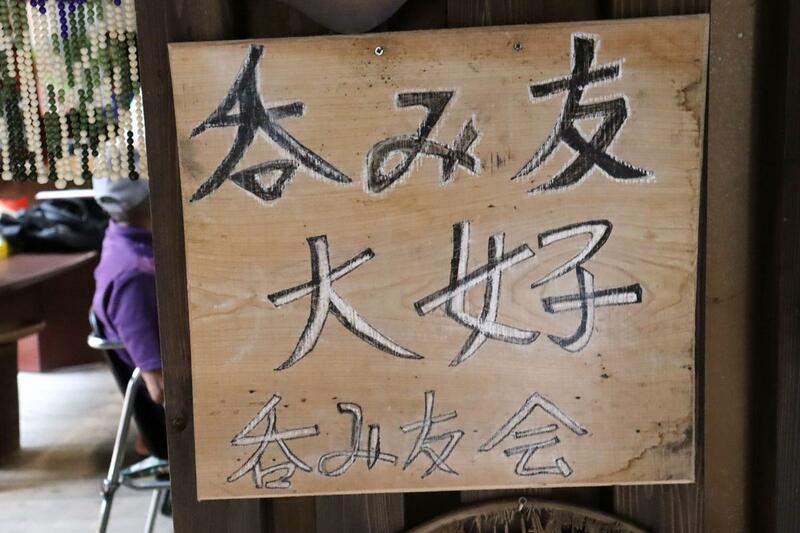 呑み友
大好
呑み友会